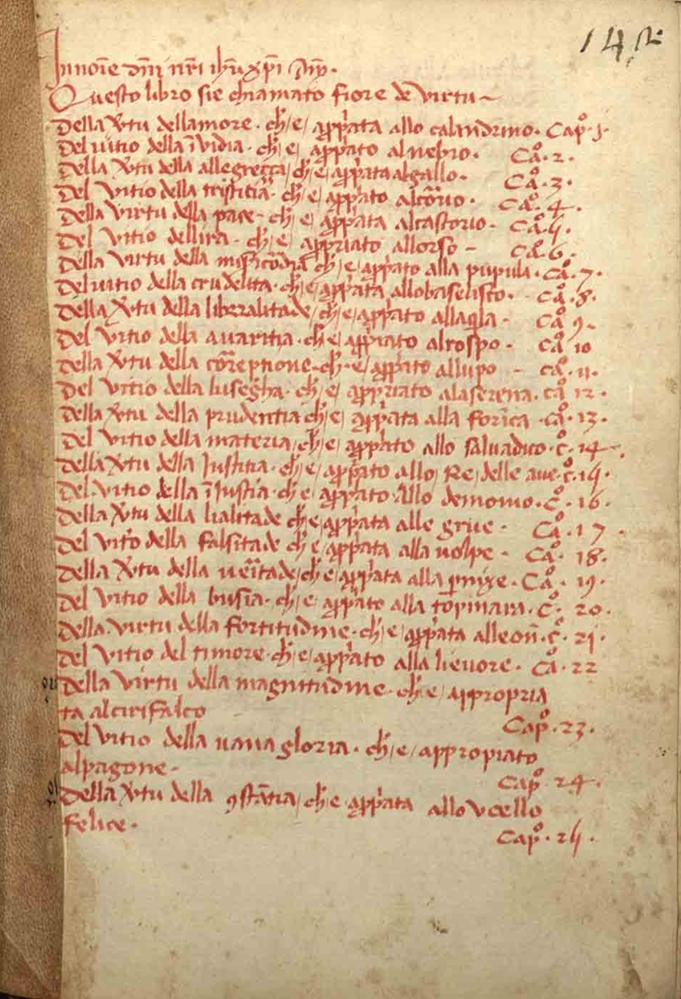 142
In noīe dn̄i nr̄i ihū xp̄i Am̄.
Questo libro sie chiamato fiore de virtu
Della Xtu dellamore. ch̄ e appp̄ata allo calandrino. Cap̊. 1.
Del vitio della īvidia. ch̄ e appp̄ato al nebio. Cå. 2.
Della Xtu della allegreçça. ch̄ e appp̄ata al gallo. Cå. 3.
Del vitio della tristitia. ch̄ e appp̄ato al corvo. Cå. 4.
Della virtu della pace. ch̄ e appp̄ata al castorio. Cå. 5.
Del vitio dellira. ch̄ e appp̄iato allorso. Cå. 6.
Della virtu della mis̄icōdia ch̄ e appp̄ato alla pupula. Cå. 7.
Del vitio della crudelita. ch̄ e appp̄ata allo basalisco. Cå. 8.
Della Xtu della liberalitade, ch̄ e appp̄ato allaq̄la. Cå. 9.
Del vitio della avaritia. ch̄ e appp̄iato al rospo. Cå. 10
Della Xtu della cōreptione. ch̄ e appp̄ato allupo. Cå. 11.
Del vitio della lusegha. ch̄ e appp̄riato ala serena. Cå. 12.
Della Xtu della prudentia ch̄ e appp̄ata alla formica. cå. 13.
Del vitio della materia. ch̄ e appp̄ato allo salvadico. C̊. 14.
Della Xtu della Justitia. ch̄ e appp̄ato allo Re delle ave. C̊. 15.
Del vitio della īJustitia. ch̄ e appp̄ato Allo demonio. C̊. 16.
Della Xtu della lialitade ch̄ e appp̄ata alle grue. Cå. 17.
Del vito della falsitade ch̄ e appp̄ata alla volpe. Cå. 18.
Della Xtu della veritade, ch̄ e appp̄ata alla p̄nixe. Cå. 19.
Del vitio della busia. ch̄ e appp̄ato alla topinara. C̊. 20.
Della virtu della fortitudine. ch̄ e appp̄ata alleon̄. C̊. 21.
Del vitio del timore. ch̄ e appp̄ato alla lievore. Cå. 22
Della virtu della magnitudine. ch̄ e appropria
ta al cirifalco
Cap̊. 23.
Del vitio della vana gloria. ch̄ e appropiato
al pagone.
Cap̊. 24.
Della Xtu della ꝯstātia, ch̄ e appp̄ata allo Vcello
felice.
Cap̊. 25.